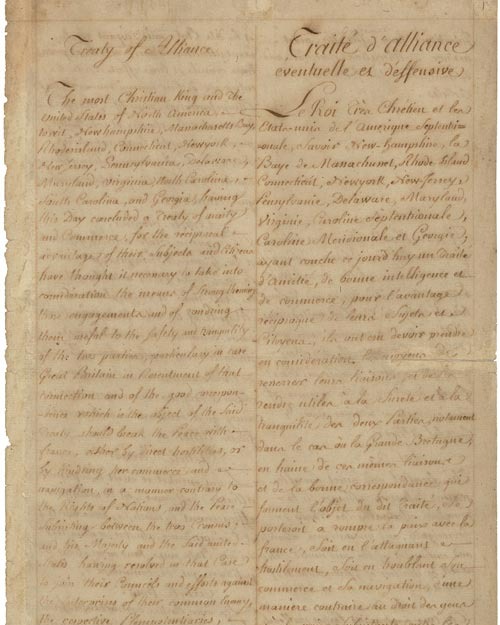 Treaty of Alliance
The most Christian King and the
United States of North America,
to wit, New hampshire, Massachusetts Bay,
Rhodeisland, Connecticut, Newyork,
New Jersey, Pennsylvania, Delaware,
Maryland, Virginia, North Carolina,
South Carolina, and Georgia, having
this Day concluded a Treaty of amity
and Commerce, for the reciprocal
advantage of their Subjects and Citizens
have thought it necessary to take into
consideration the means of strengthening
those engagements and of rendring
them useful to the safety and tranquility
of the two parties, particularly in case
Great Britain in Resentment of that
connection and of the good correspon-
dence which is the object of the said
Treaty, should break the Peace with
france, either by direct hostilities, or
by hindring her commerce and
navigation, in a manner contrary to
the Rights of Nations, and the Peace
subsisting between the two Crowns;
and his Majesty and the Said united
States having resolved in that Case
to join their Councils and efforts against
the Enterprises of their common Enemy,
the respective Plenipotentiaries,
Traité d'alliance
éventuelle et défensive
Le Roi très Chrétien et les
Etats-unis de l'Amérique Septentri-
onale, Savoir New-hampshire, la
Baye de Massachuset, Rhode Island
Connecticut, Newyork, New-Jersey,
Pensylvanie, Delaware, Maryland,
Virginie, Caroline Septentrionale,
Caroline Méridionale et Georgie,
ayant conclu ce jourd'huy un traité
d'Amitié, de bonne intelligence et
de commerce, pour l'avantage
réciproque de leurs Sujets et
Citoyens, ils ont cru devoir prendre
en considération les moyens de
resserrer leurs liaisons et de les
rendre utiles à la Sureté et à la
tranquilité des deux Parties, notament
dans le cas où la Grande Bretagne,
en haine de ces mêmes liaisons
et de la bonne correspondance qui
forment l'objet du dit Traité, Se
porteroit à rompre la paix avec la
france, Soit en l'attaquant
hostilement, Soit en troublant son
commerce et Sa navigation, d'une
manière contraire au Droit des gens